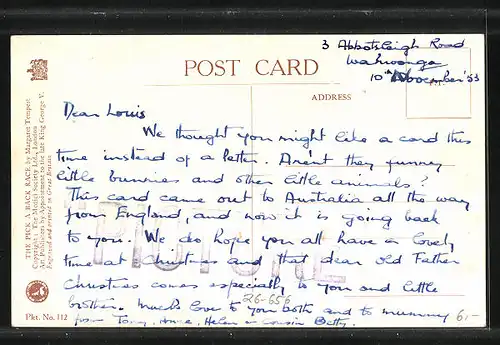 3 Abbotsleigh Road
Wahroonga
10th November '53
POST CARD
ADDRESS
Dear Louis
We thought you might like a card this
time instead of a letter. Aren't they funny
little bunnies and other little animals?
This card came out to Australia all the way
from England, and now it is going back
to you. We do hope you all have a lovely
time at Christmas and that dear old Father
Christmas comes especially to you and little
brother. Much love to you both and to mummy
from Tony, Helen Cousin Betty.
26-656
6,-
THE PICK A BACK RACE by Margaret Tempest
Copyright: The Medici Society Ltd., London
Art Publishers by Appointment to the late King George V.
Engraved and printed in Great Britain
Pkt. No. 112